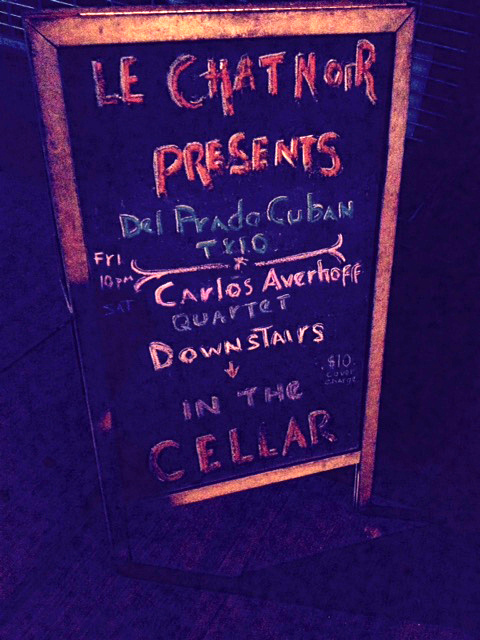 LE CHAT NOIR
PRESENTS
Del Prado Cuban
TRIO
FRI
10pm
SAT
Carlos Averhoff
QUARTET
DOWNSTAIRS
$10
COVER
CHARGE
IN THE
CELLAR